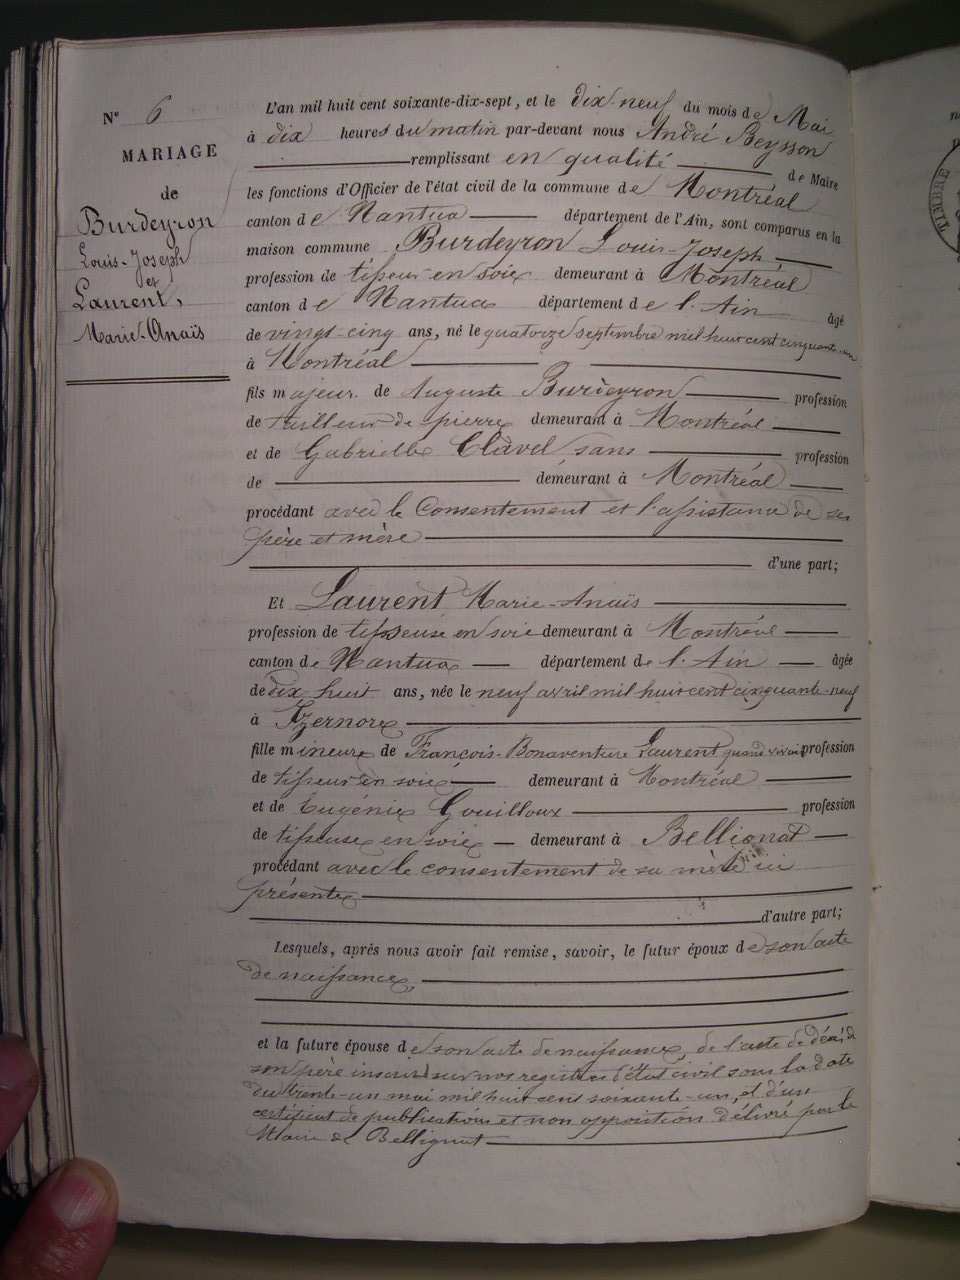 N° 6
MARIAGE
de
Burdeyron
Louis-Joseph
et
Laurent,
Marie-Anaïs
L'an mil huit cent soixante-dix-sept, et le dix-neuf du mois de Mai
à dix heures du matin par-devant nous André Beysson
remplissant en qualité de Maire
les fonctions d'Officier de l'état civil de la commune de Montréal
canton de Nantua département de l'Ain, sont comparus en la
maison commune Burdeyron Louis-Joseph
profession de tisseur en soie demeurant à Montréal
canton de Nantua département de l'Ain âgé
de vingt-cinq ans, né le quatorze septembre mil huit cent cinquante-un
à Montréal
fils majeur de Auguste Burdeyron profession
de tailleur de pierre demeurant à Montréal
et de Gabrielle Clavel sans profession
de demeurant à Montréal
procédant avec le Consentement et l'assistance de ses
père et mère
d'une part;
Et Laurent Marie-Anaïs
profession de tisseuse en soie demeurant à Montréal
canton de Nantua département de l'Ain âgée
de dix huit ans, née le neuf avril mil huit cent cinquante-neuf
à Izernore
fille mineure de François-Bonaventure Laurent quand vivait profession
de tisseur en soie demeurant à Montréal
et de Eugénie Gouilloux profession
de tisseuse en soie demeurant à Bellignat
procédant avec le consentement de sa mère ici
présente
d'autre part;
Lesquels, après nous avoir fait remise, savoir, le futur époux de son acte
de naissance,
et la future épouse de son acte de naissance, de l'acte de décès de
son père inscrit sur nos registres d'état civil sous la date
du trente-un mai mil huit cent soixante-un, et d'un
certificat de publications et non opposition délivré par le
Maire de Bellignat
TIMBRE